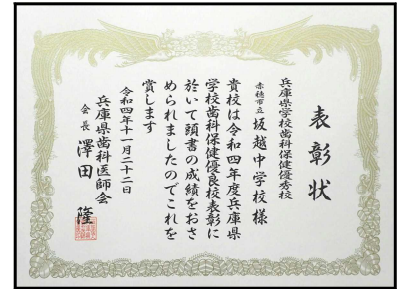 表彰状
兵庫県学校歯科保健優秀校
赤穂市立 坂越中学校 様
貴校は令和四年度兵庫県
学校歯科保健優良校表彰に
於いて頭書の成績をおさ
められましたのでこれを
賞します
令和四年十一月二十二日
兵庫県歯科医師会
会長 澤田 隆